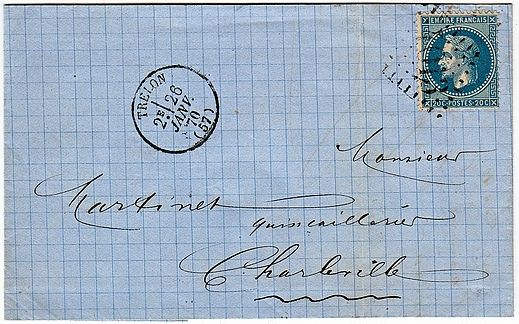 EMPIRE FRANÇAIS
20C POSTES 20C
TRELON
2E
26
JANV.
70
(57)
Monsieur
Martinet
quincaillerie
Charleville